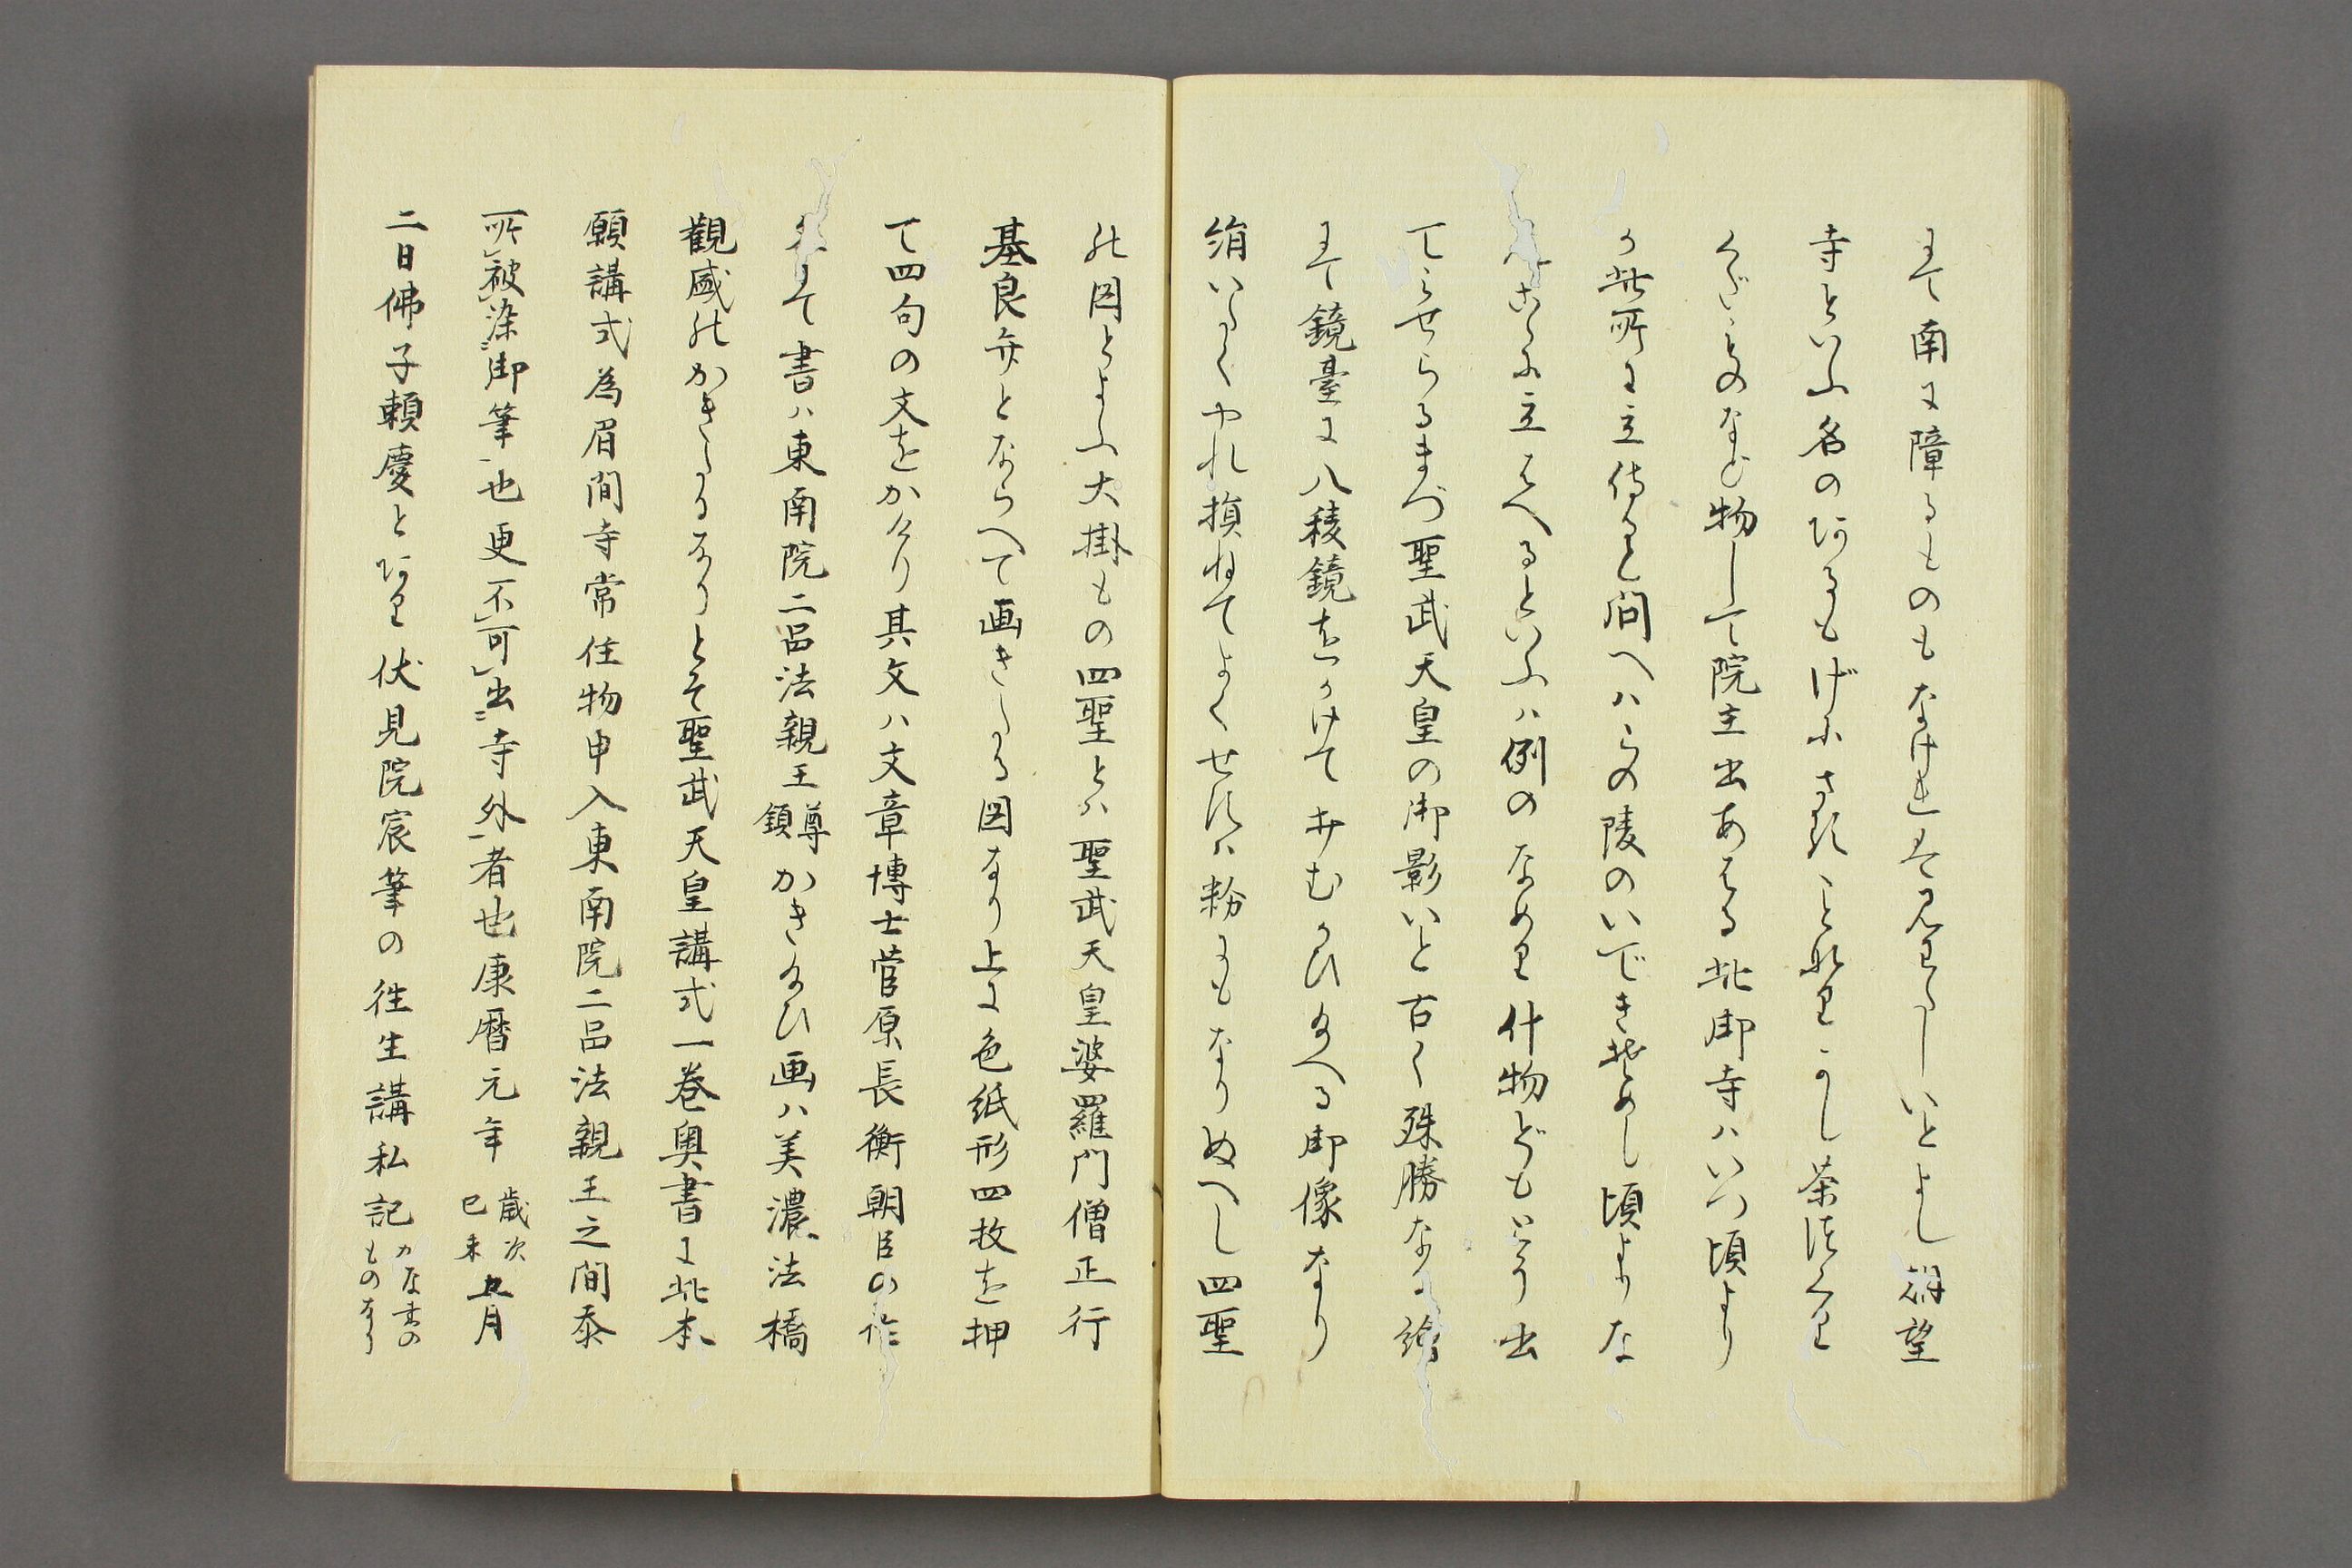 にて南に障るものもなけれは見わたしいとよし眺望
寺といふ名のあるもげにさることなりかし茶清くり
くだものなど物して院主出あへる此御寺ハいつ頃より
か此所に立侍ると問へハこの陵のいできそめし頃よりな
んこゝに立るへるといふハ例のなめり什物どもとり出
てミせらるまづ聖武天皇の御影いと古く殊勝なる繪
にて鏡臺に八稜鏡をかけてそむかひ給へる御像なり
絹いたくやれ損ねてよくせすハ粉にもなりぬへし四聖
の図とよふ大掛もの四聖とハ聖武天皇婆羅門僧正行
基良弁とならへて画きたる図なり上に色紙形四枚を押
て四句の文をかけり其文ハ文章博士菅原長衡朝臣の作
にて書ハ東南院二品法親王尊鎮かき給ひ画ハ美濃法橋
観盛のかきたるなりとそ聖武天皇講式一巻奥書に此本
願講式為眉間寺常住物申入東南院二品法親王之間忝
所被染御筆也更不可出寺外者也康暦元年歳次己未五月
二日佛子頼慶とあり伏見院宸筆の往生講私記かな書のものなり